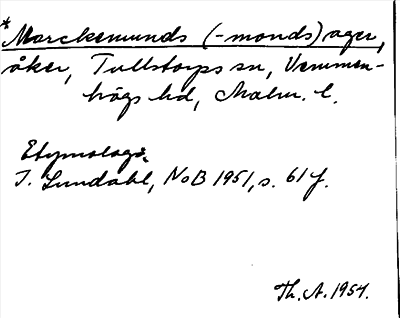 *Marckemunds (-monds)ager,
åker, Tullstorps sn, Vemmen-
högs hd, Malm. l.
Etymologi.
I. Lundahl, NoB 1951, s. 61 f.
Th. A. 1954.